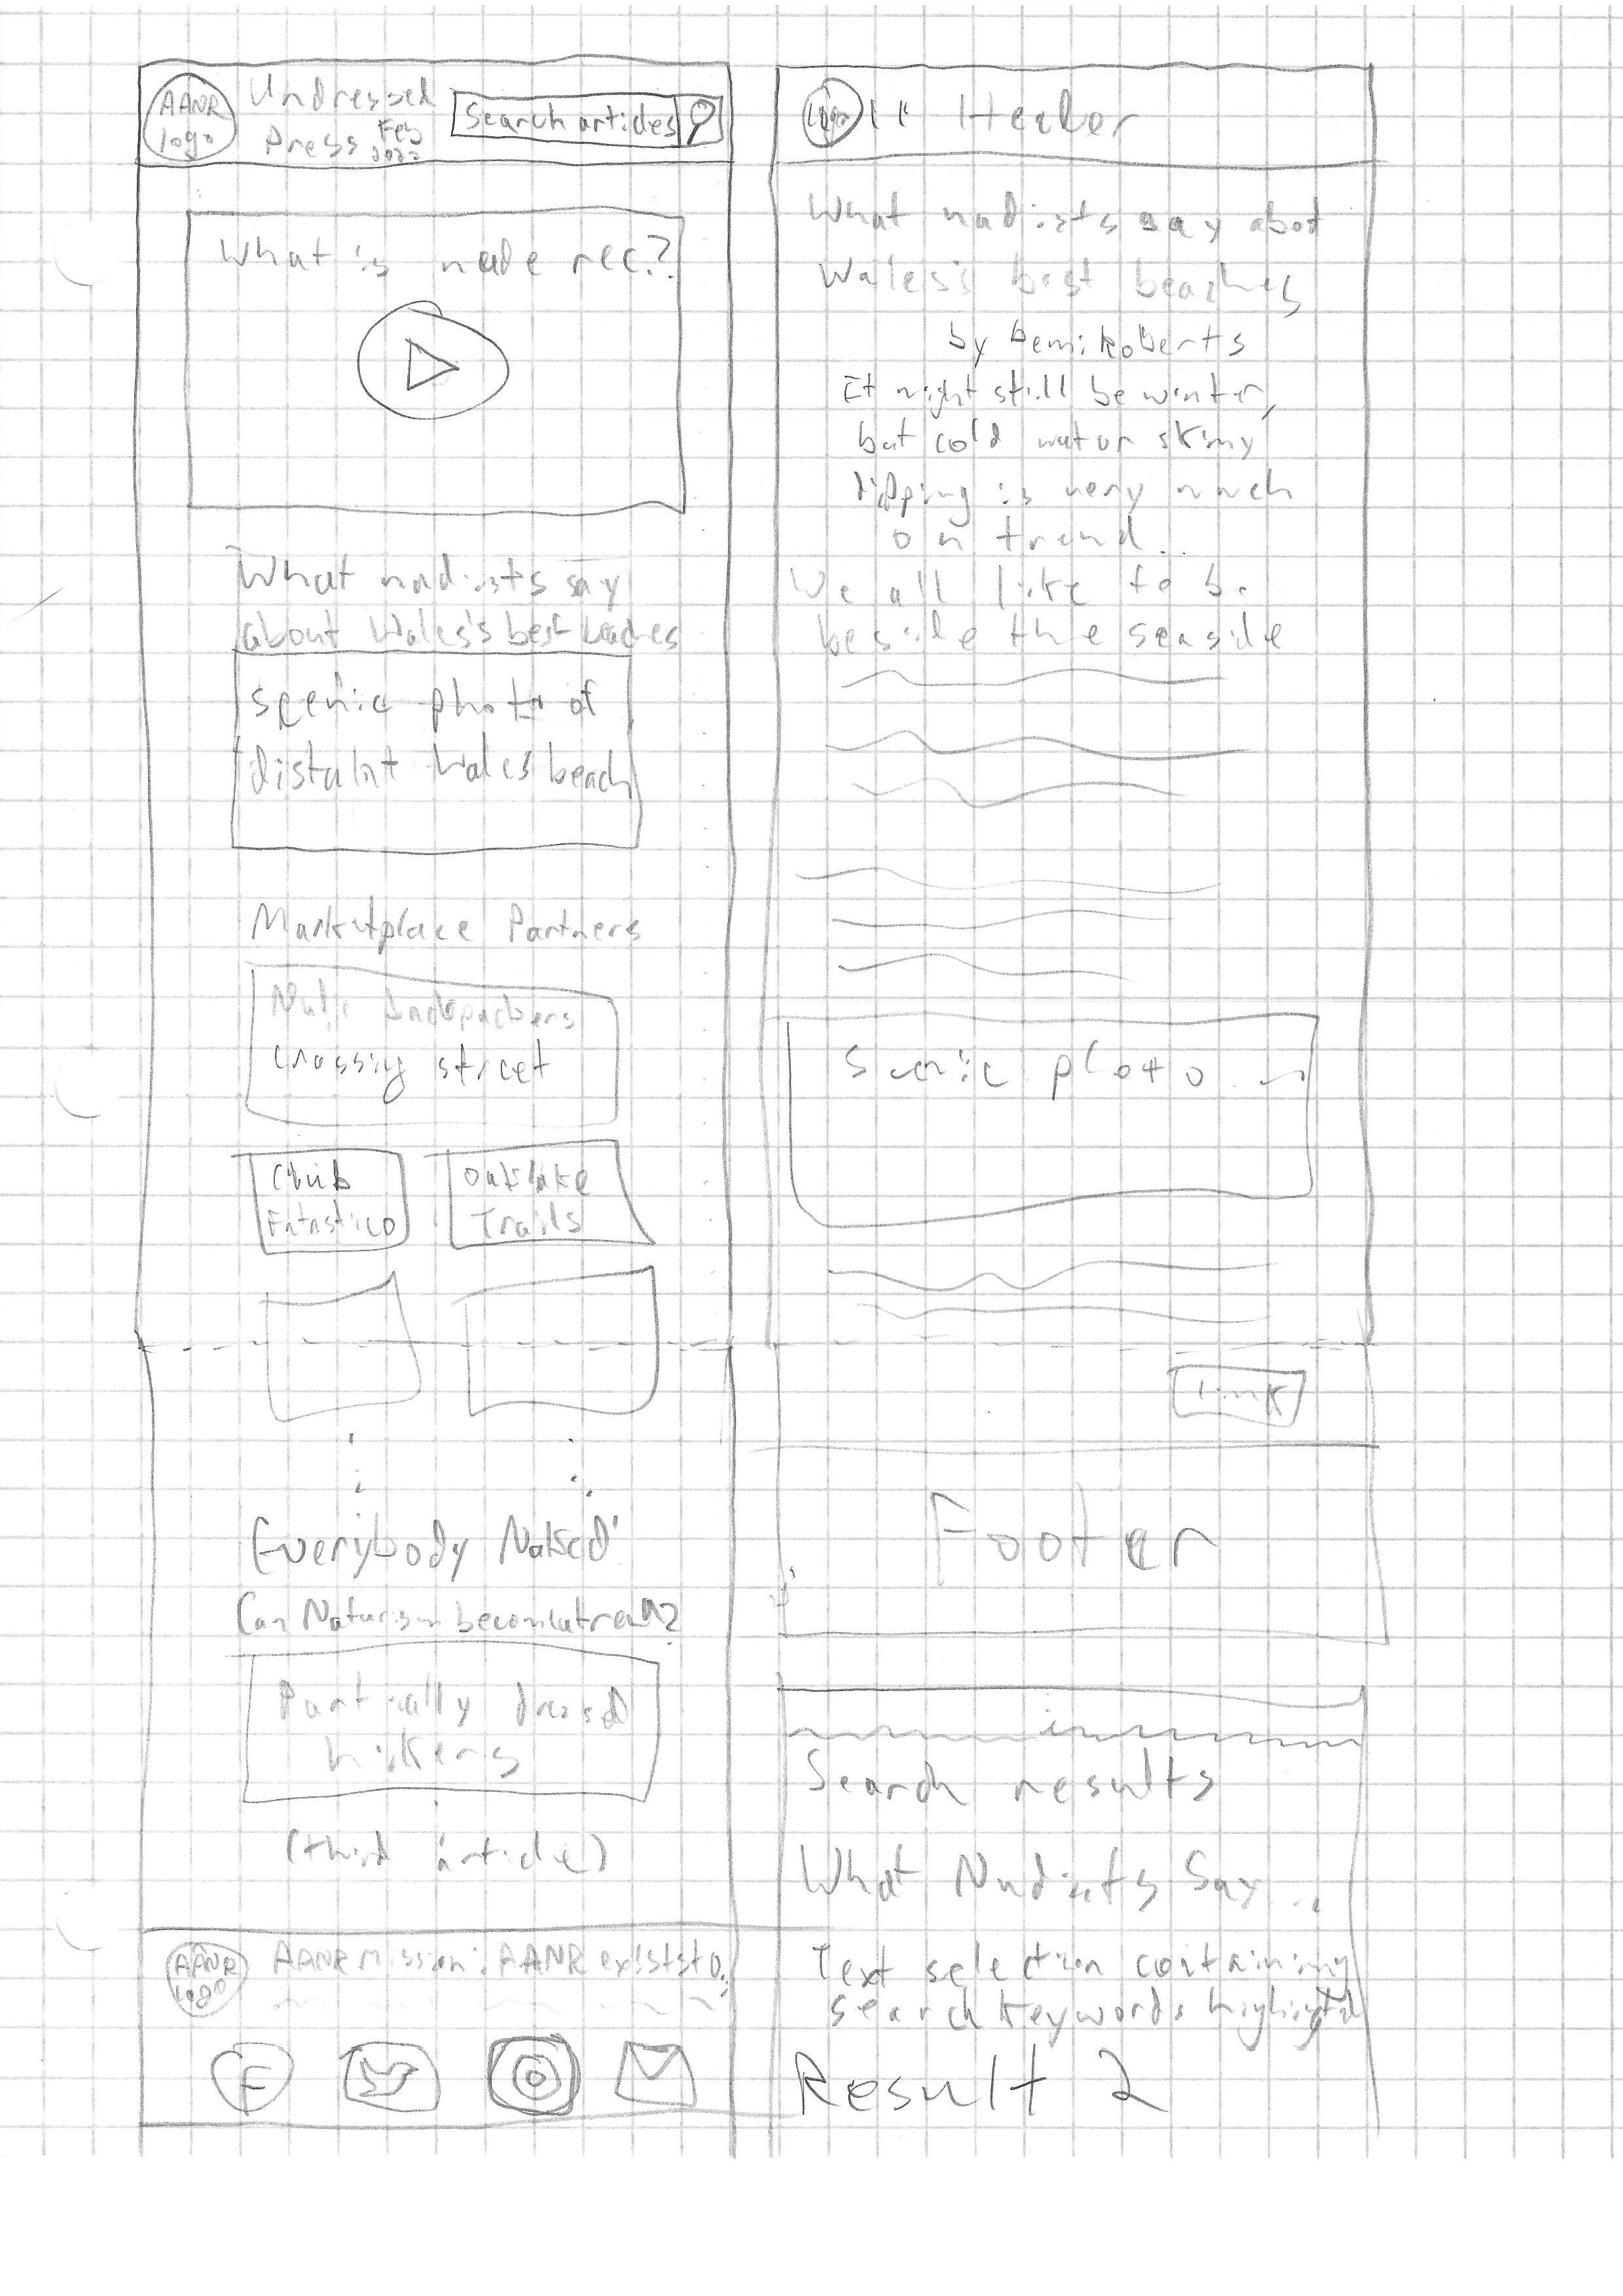 AANR
logo
Undressed
Press Feb
2022
Search articles
What is nude rec.?
What nudists say
about Wales's best beaches
scenic photo of
distant Wales beach
Marketplace Partners
Nude backpackers
crossing street
Club
Fntastico
Oaklake
Trails
Everybody Naked'
Can Naturism become a trend?
Partially dressed
hikers
(third article)
AANR
logo
AANR Mission: AANR exists to
F
logo
" Header
What nudists say about
Wales's best beaches
by Demi Roberts
It might still be winter,
but cold water skinny
dipping is very much
on trend...
We all like to be
beside the seaside
Scenic photo
Link
Footer
Search results
What Nudists Say...
Text selection containing
search keywords
Result 2